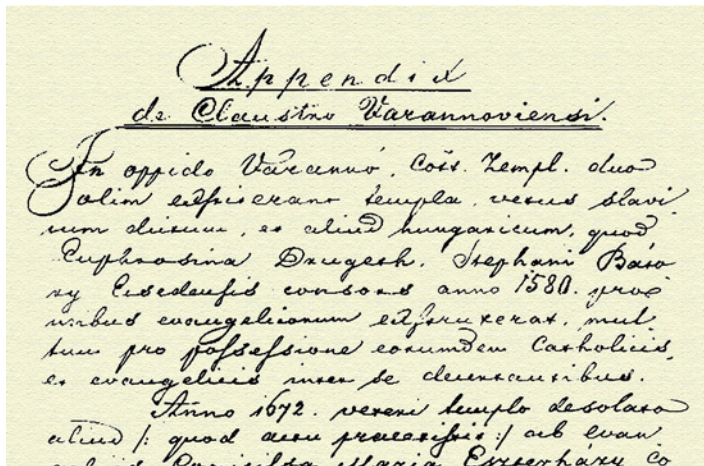 Appendix
de Claustro Varannoviensi.
In oppido Varannó, Cott. Zempl. duo
olim extiterant templa, vetus slavi
cum dictum, et aliud hungaricum, quod
Euphrosina Drugeth. Stephani Báto
ry Ecsedensis consors anno 1580. pro
evangelicorum extruxerat, mul
tum pro possessione eorumdem Catholicis,
et evangelicis inter se decertantibus.
Anno 1672. veteri templo desolato
aliud /: quod :/ ab evan
Maria Eszterházy co